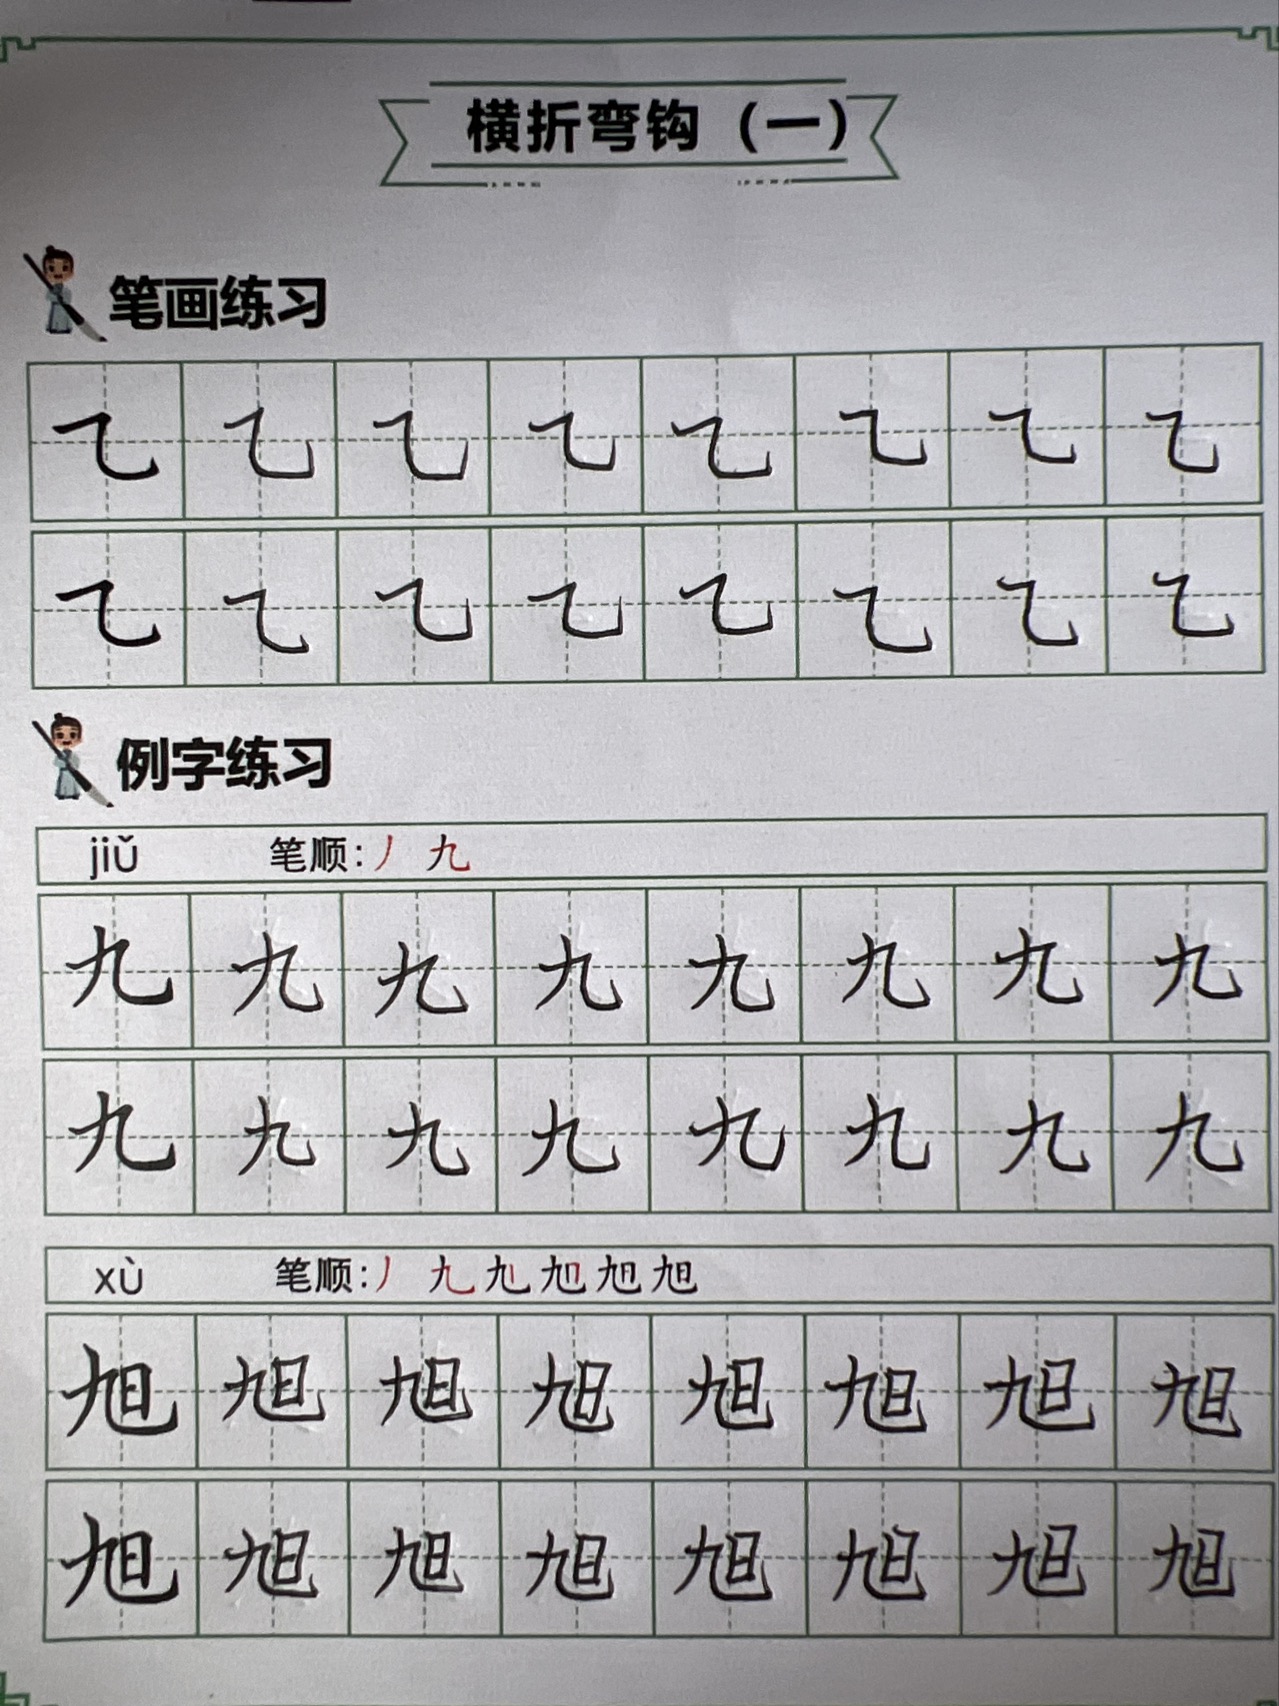 横折弯钩（一）
笔画练习
㇈ ㇈ ㇈ ㇈ ㇈ ㇈ ㇈ ㇈
㇈ ㇈ ㇈ ㇈ ㇈ ㇈ ㇈ ㇈
例字练习
jiǔ 笔顺:丿 九
九 九 九 九 九 九 九 九
九 九 九 九 九 九 九 九
xù 笔顺:丿 九 旭 旭
旭 旭 旭 旭 旭 旭 旭 旭
旭 旭 旭 旭 旭 旭 旭 旭